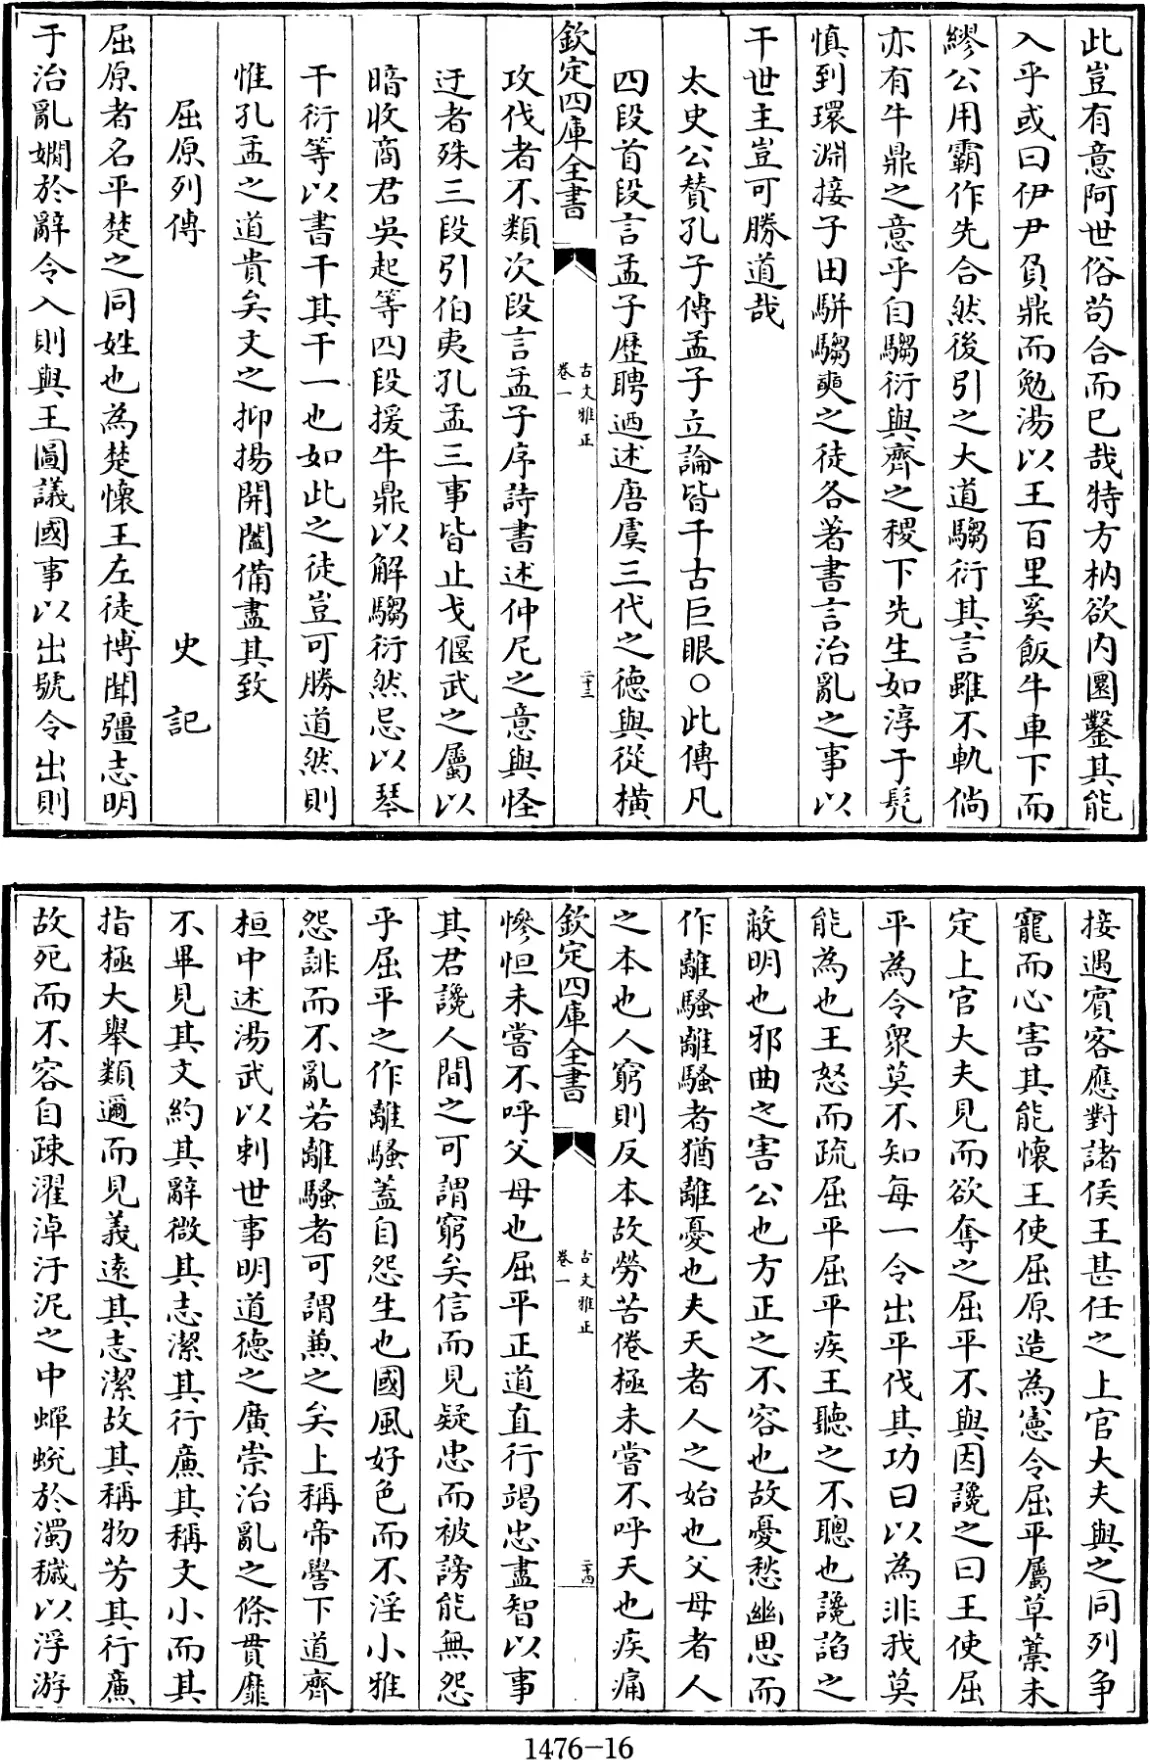 此豈有意阿世俗苟合而已哉特方枘欲内圜鑿其能
入乎或曰伊尹負鼎而勉湯以王百里奚飯牛車下而
繆公用霸作先合然後引之大道騶衍其言雖不軌倘
亦有牛鼎之意乎自騶衍與齊之稷下先生如淳于髠
慎到環淵接子田駢騶奭之徒各著書言治亂之事以
干世主豈可勝道哉
太史公賛孔子傳孟子立論皆千古巨眼○此傳凡
四段首段言孟子歴聘廼述唐虞三代之德與從横
欽定四庫全書
古文雅正
卷一
二十三
攻伐者不類次段言孟子序詩書述仲尼之意與怪
迂者殊三段引伯夷孔孟三事皆止戈偃武之屬以
暗收商君吳起等四段援牛鼎以解騶衍然忌以琴
干衍等以書干其干一也如此之徒豈可勝道然則
惟孔孟之道貴矣文之抑揚開闔備盡其致
屈原列傳 史記
屈原者名平楚之同姓也為楚懷王左徒博聞彊志明
于治亂嫺於辭令入則與王圖議國事以出號令出則
接遇賓客應對諸侯王甚任之上官大夫與之同列争
寵而心害其能懷王使屈原造為憲令屈平屬草藁未
定上官大夫見而欲奪之屈平不與因讒之曰王使屈
平為令衆莫不知每一令出平伐其功曰以為非我莫
能為也王怒而疏屈平屈平疾王聽之不聰也讒諂之
蔽明也邪曲之害公也方正之不容也故憂愁幽思而
作離騷離騷者猶離憂也夫天者人之始也父母者人
之本也人窮則反本故勞苦倦極未嘗不呼天也疾痛
欽定四庫全書
古文雅正
卷一
二十四
慘怛未嘗不呼父母也屈平正道直行竭忠盡智以事
其君讒人間之可謂窮矣信而見疑忠而被謗能無怨
乎屈平之作離騷蓋自怨生也國風好色而不淫小雅
怨誹而不亂若離騷者可謂兼之矣上稱帝嚳下道齊
桓中述湯武以刺世事明道德之廣崇治亂之條貫靡
不畢見其文約其辭微其志潔其行廉其稱文小而其
指極大舉類邇而見義遠其志潔故其稱物芳其行廉
故死而不容自疎濯淖汙泥之中蟬蛻於濁穢以浮游
1476-16